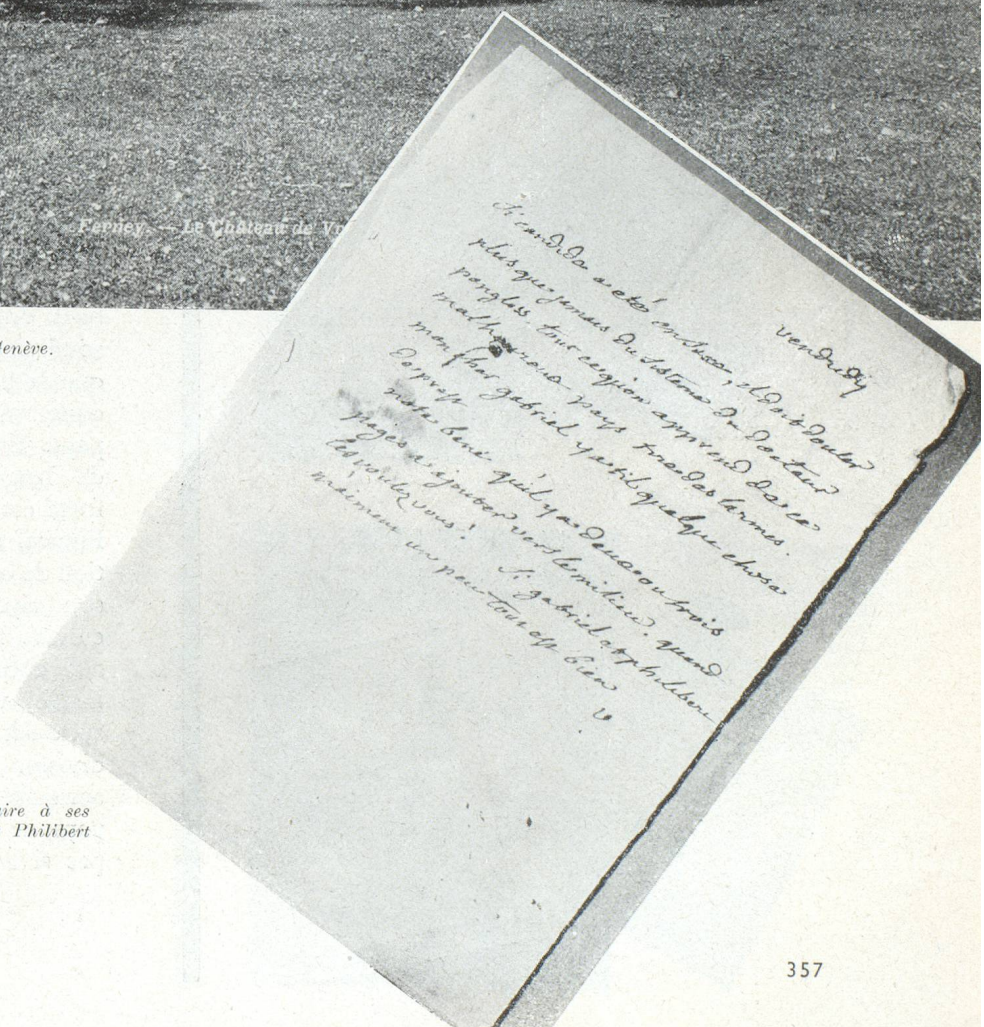 Ferney. — Le Château de Vo
Genève.
vendredy
Si candide a eté en suisse, il doit douter
plus que jamais du sisteme du docteur
pangloss. tout ce qu'on apprend de ce
malheureux pays tire des larmes.
mon cher gabriel y a t'il quelque chose
nota bene qu'il y a deux ou trois
pages a ajouter vers le milieu. quand
les voulez vous? Si gabriel et philibert
m'aiment un peu tout est bien
V
ire à ses
Philibert
357